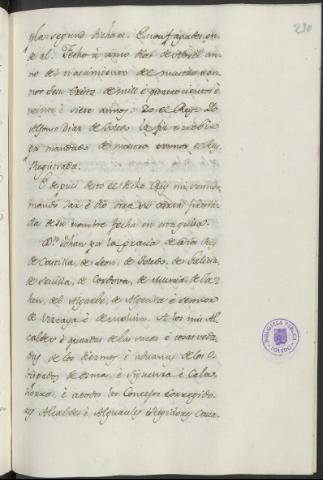 230
plar segund dicho es. E non fagades en-
de al. Fecho a cinco dias de Abril an-
no del nacimiento del nuestro sen-
nor Jesu Cristo de mill è quatrocientos è
veinte è siete annos. Yo el Rey. Yo
Alfonso Diaz de la fiz escrebir
por mandado de nuestro sennor el Rey.
Registrada.
E despues desto el dicho Rey mi sennor
mando dar è dió otra su carta firmada
de su nombre fecha en esta guisa.
Don Johan por la gracia de Dios Rey
de Castilla, de Leon, de Toledo, de Galicia,
de Sevilla, de Cordova, de Murcia, de Ja-
hen, del Algarbe, de Algecira è Sennor
de Vizcaya è de Molina. A los mis Al-
caldes è guardas de la saca è cosas veda-
das de los diezmos è aduanas de los O-
bispados de Osma, è Siguenza è Cala-
horra, è a todos los Concejos Corregido-
res Alcaldes è Alguaciles Regidores Cava-
BIBLIOTECA PUBLICA
TOLEDO